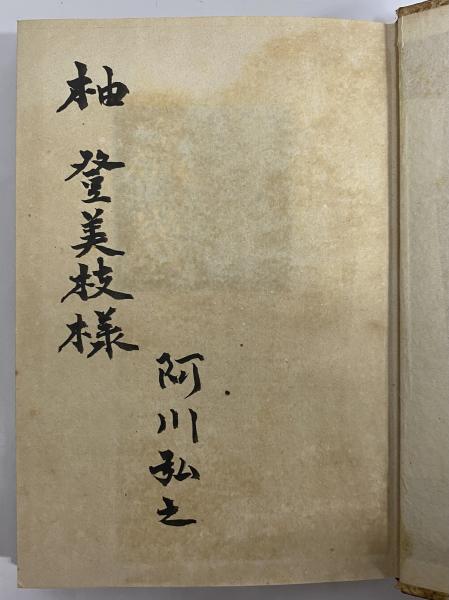 柚 登美枝様
阿川弘之